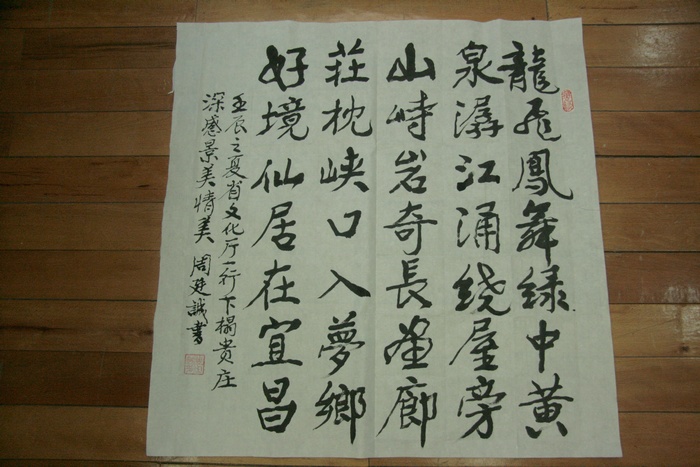 龍飛鳳舞绿中黄
泉潺江涌绕屋旁
山峙岩奇長画廊
荘枕峡口入夢鄉
好境仙居在宜昌
壬辰之夏省文化厅一行下榻贵庄
深感景美情美 周廷誠書